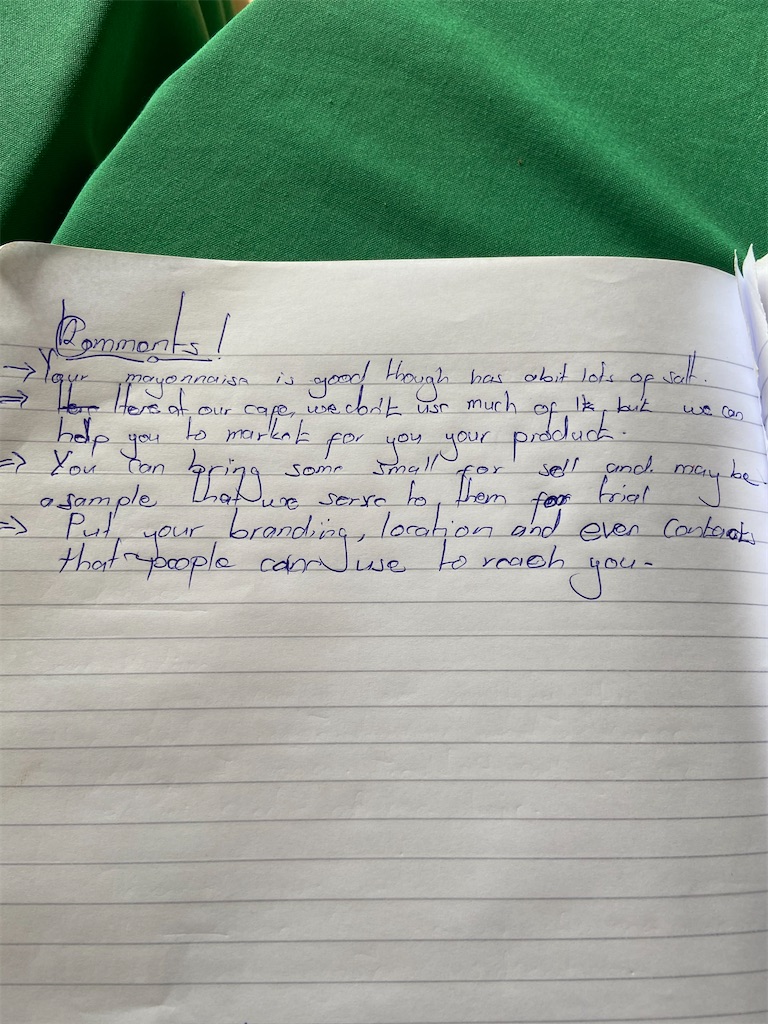 Comments!
→ Your mayonnaise is good though has abit lots of salt.
⇒ Here at our cafe, we don't use much of it, but we can
help you to market for you your product.
⇒ You can bring some small for sell and maybe
a sample that we serve to them for trial
⇒ Put your branding, location and even contacts
that people can use to reach you.